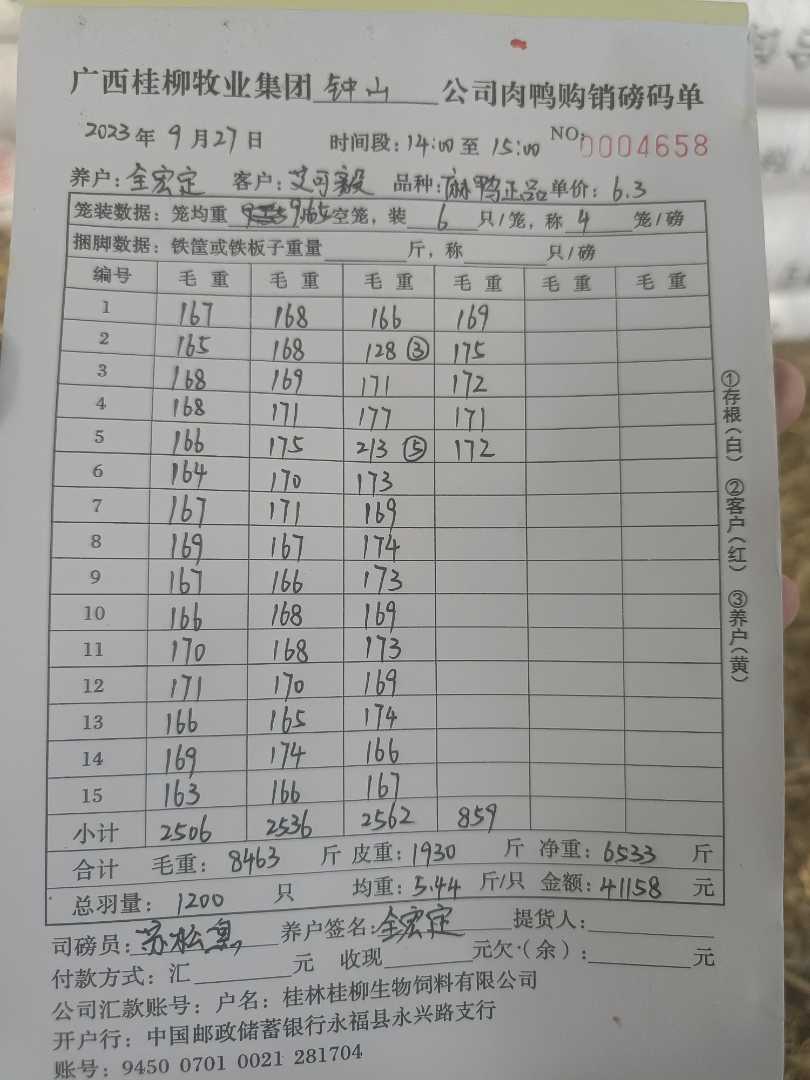 广西桂柳牧业集团 钟山 公司肉鸭购销磅码单
2023年9月27日 时间段：14:00至15:00 NO:0004658
养户：全宏定 客户：艾可毅 品种：麻鸭正品 单价：6.3
笼装数据：笼均重 9.65 空笼，装 6 只/笼，称 4 笼/磅
捆脚数据：铁筐或铁板子重量 斤，称 只/磅
编号 毛重 毛重 毛重 毛重 毛重 毛重
1 167 168 166 169
2 165 168 128 ③ 175
3 168 169 171 172
4 168 171 177 171
5 166 175 213 ⑤ 172
6 164 170 173
7 167 171 169
8 169 167 174
9 167 166 173
10 166 168 169
11 170 168 173
12 171 170 169
13 166 165 174
14 169 174 166
15 163 166 167
小计 2506 2536 2562 859
合计 毛重：8463 斤 皮重：1930 斤 净重：6533 斤
总羽量：1200 只 均重：5.44 斤/只 金额：41158 元
司磅员：苏松 养户签名：全宏定 提货人：
付款方式：汇 元 收现 元欠（余）： 元
公司汇款账号：户名：桂林桂柳生物饲料有限公司
开户行：中国邮政储蓄银行永福县永兴路支行
账号：9450 0701 0021 281704
①存根（白） ②客户（红） ③养户（黄）